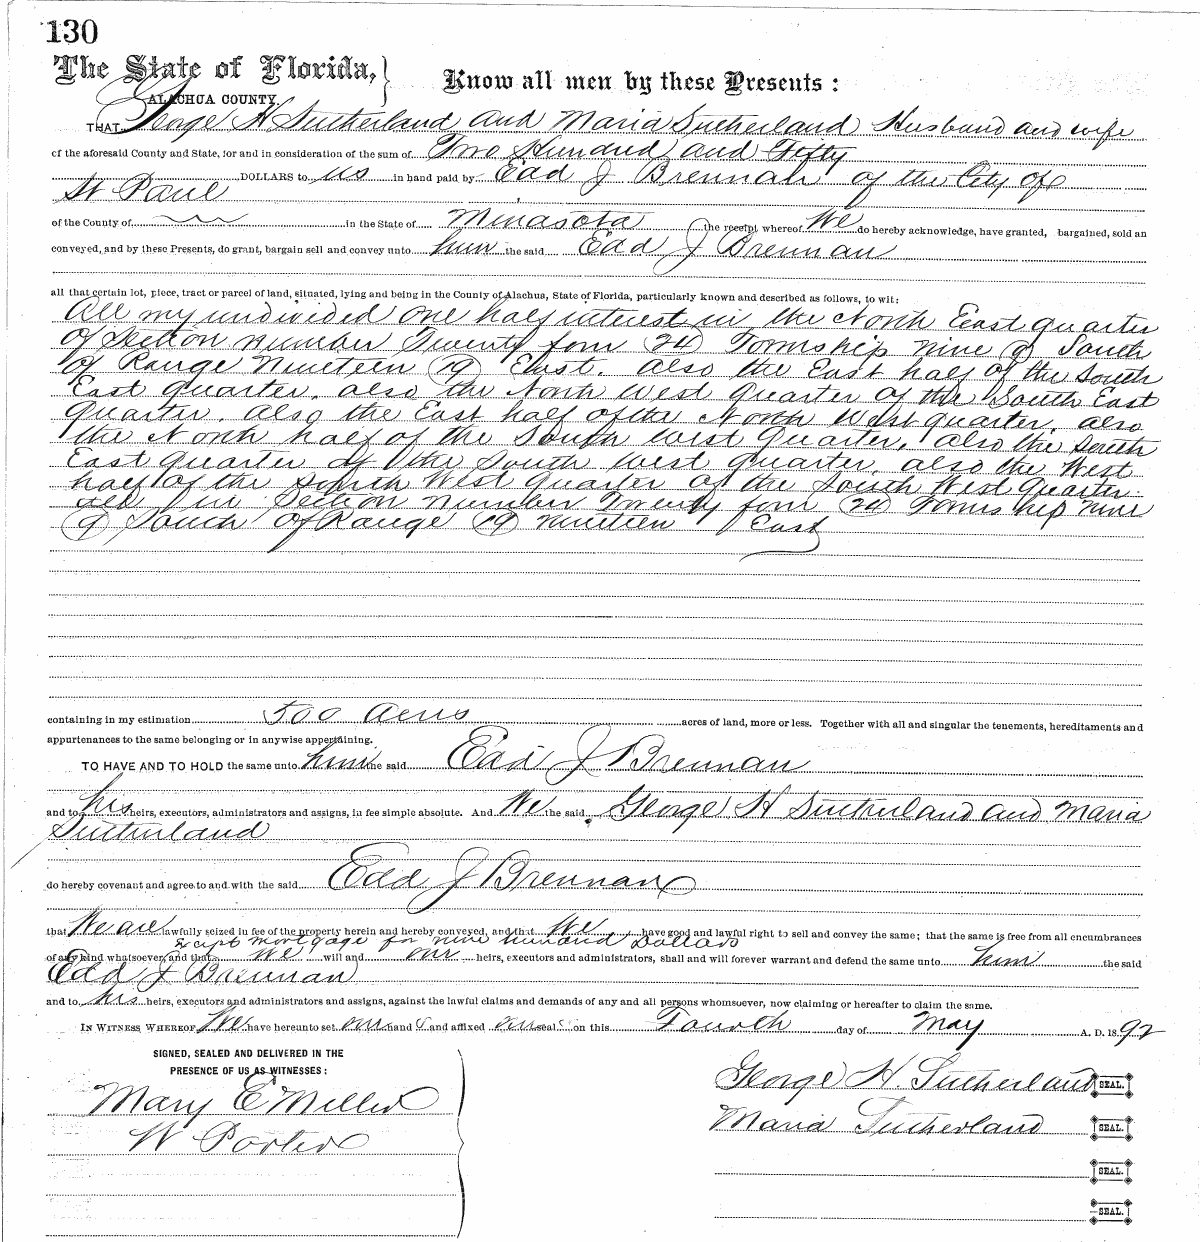 130
The State of Florida,} Know all men by these Presents:
ALACHUA COUNTY.
THAT George H Sutherland and Maria Sutherland Husband and wife
of the aforesaid County and State, for and in consideration of the sum of Two Hundred and Fifty
DOLLARS to us in hand paid by Edd J Brennan of the City of
St Paul
of the County of in the State of Minasota the receipt whereof We do hereby acknowledge, have granted, bargained, sold an
conveyed, and by these Presents, do grant, bargain sell and convey unto him the said Edd J Brennan
all that certain lot, piece, tract or parcel of land, situated, lying and being in the County of Alachua, State of Florida, particularly known and described as follows, to wit:
All my undivided one half interest in the North East quarter
Of Section number Twenty four (24) Township nine (9) South
of Range Nineteen (19) East. also the East half of the South
East quarter. also the North West quarter of the South East
quarter. also the East half of the North West quarter. also
the North half of the South West quarter. also the South
East quarter of the South West quarter. also the West
half of the South West quarter of the South West quarter.
all in Section number Twenty four (24) Township nine
(9) South Of Range (19) nineteen East
containing in my estimation 500 acres acres of land, more or less. Together with all and singular the tenements, hereditaments and
appurtenances to the same belonging or in anywise appertaining.
TO HAVE AND TO HOLD the same unto him the said Edd J Brennan
and to his heirs, executors, administrators and assigns, in fee simple absolute. And We the said George H Sutherland and Maria
Sutherland
do hereby covenant and agree to and with the said Edd J Brennan
that We are lawfully seized in fee of the property herein and hereby conveyed, and that We have good and lawful right to sell and convey the same; that the same is free from all encumbrances
except mortgage for nine hundred Dollars
of any kind whatsoever, and that we will and our heirs, executors and administrators, shall and will forever warrant and defend the same unto him the said
Edd J Brennan
and to his heirs, executors and administrators and assigns, against the lawful claims and demands of any and all persons whomsoever, now claiming or hereafter to claim the same.
IN WITNESS WHEREOF We have hereunto set our hand s and affixed our seal s on this Fourth day of May A. D. 1892
SIGNED, SEALED AND DELIVERED IN THE
PRESENCE OF US AS WITNESSES:
George H. Sutherland SEAL.
Mary E Miller
Maria Sutherland SEAL.
W Porter
SEAL.
SEAL.